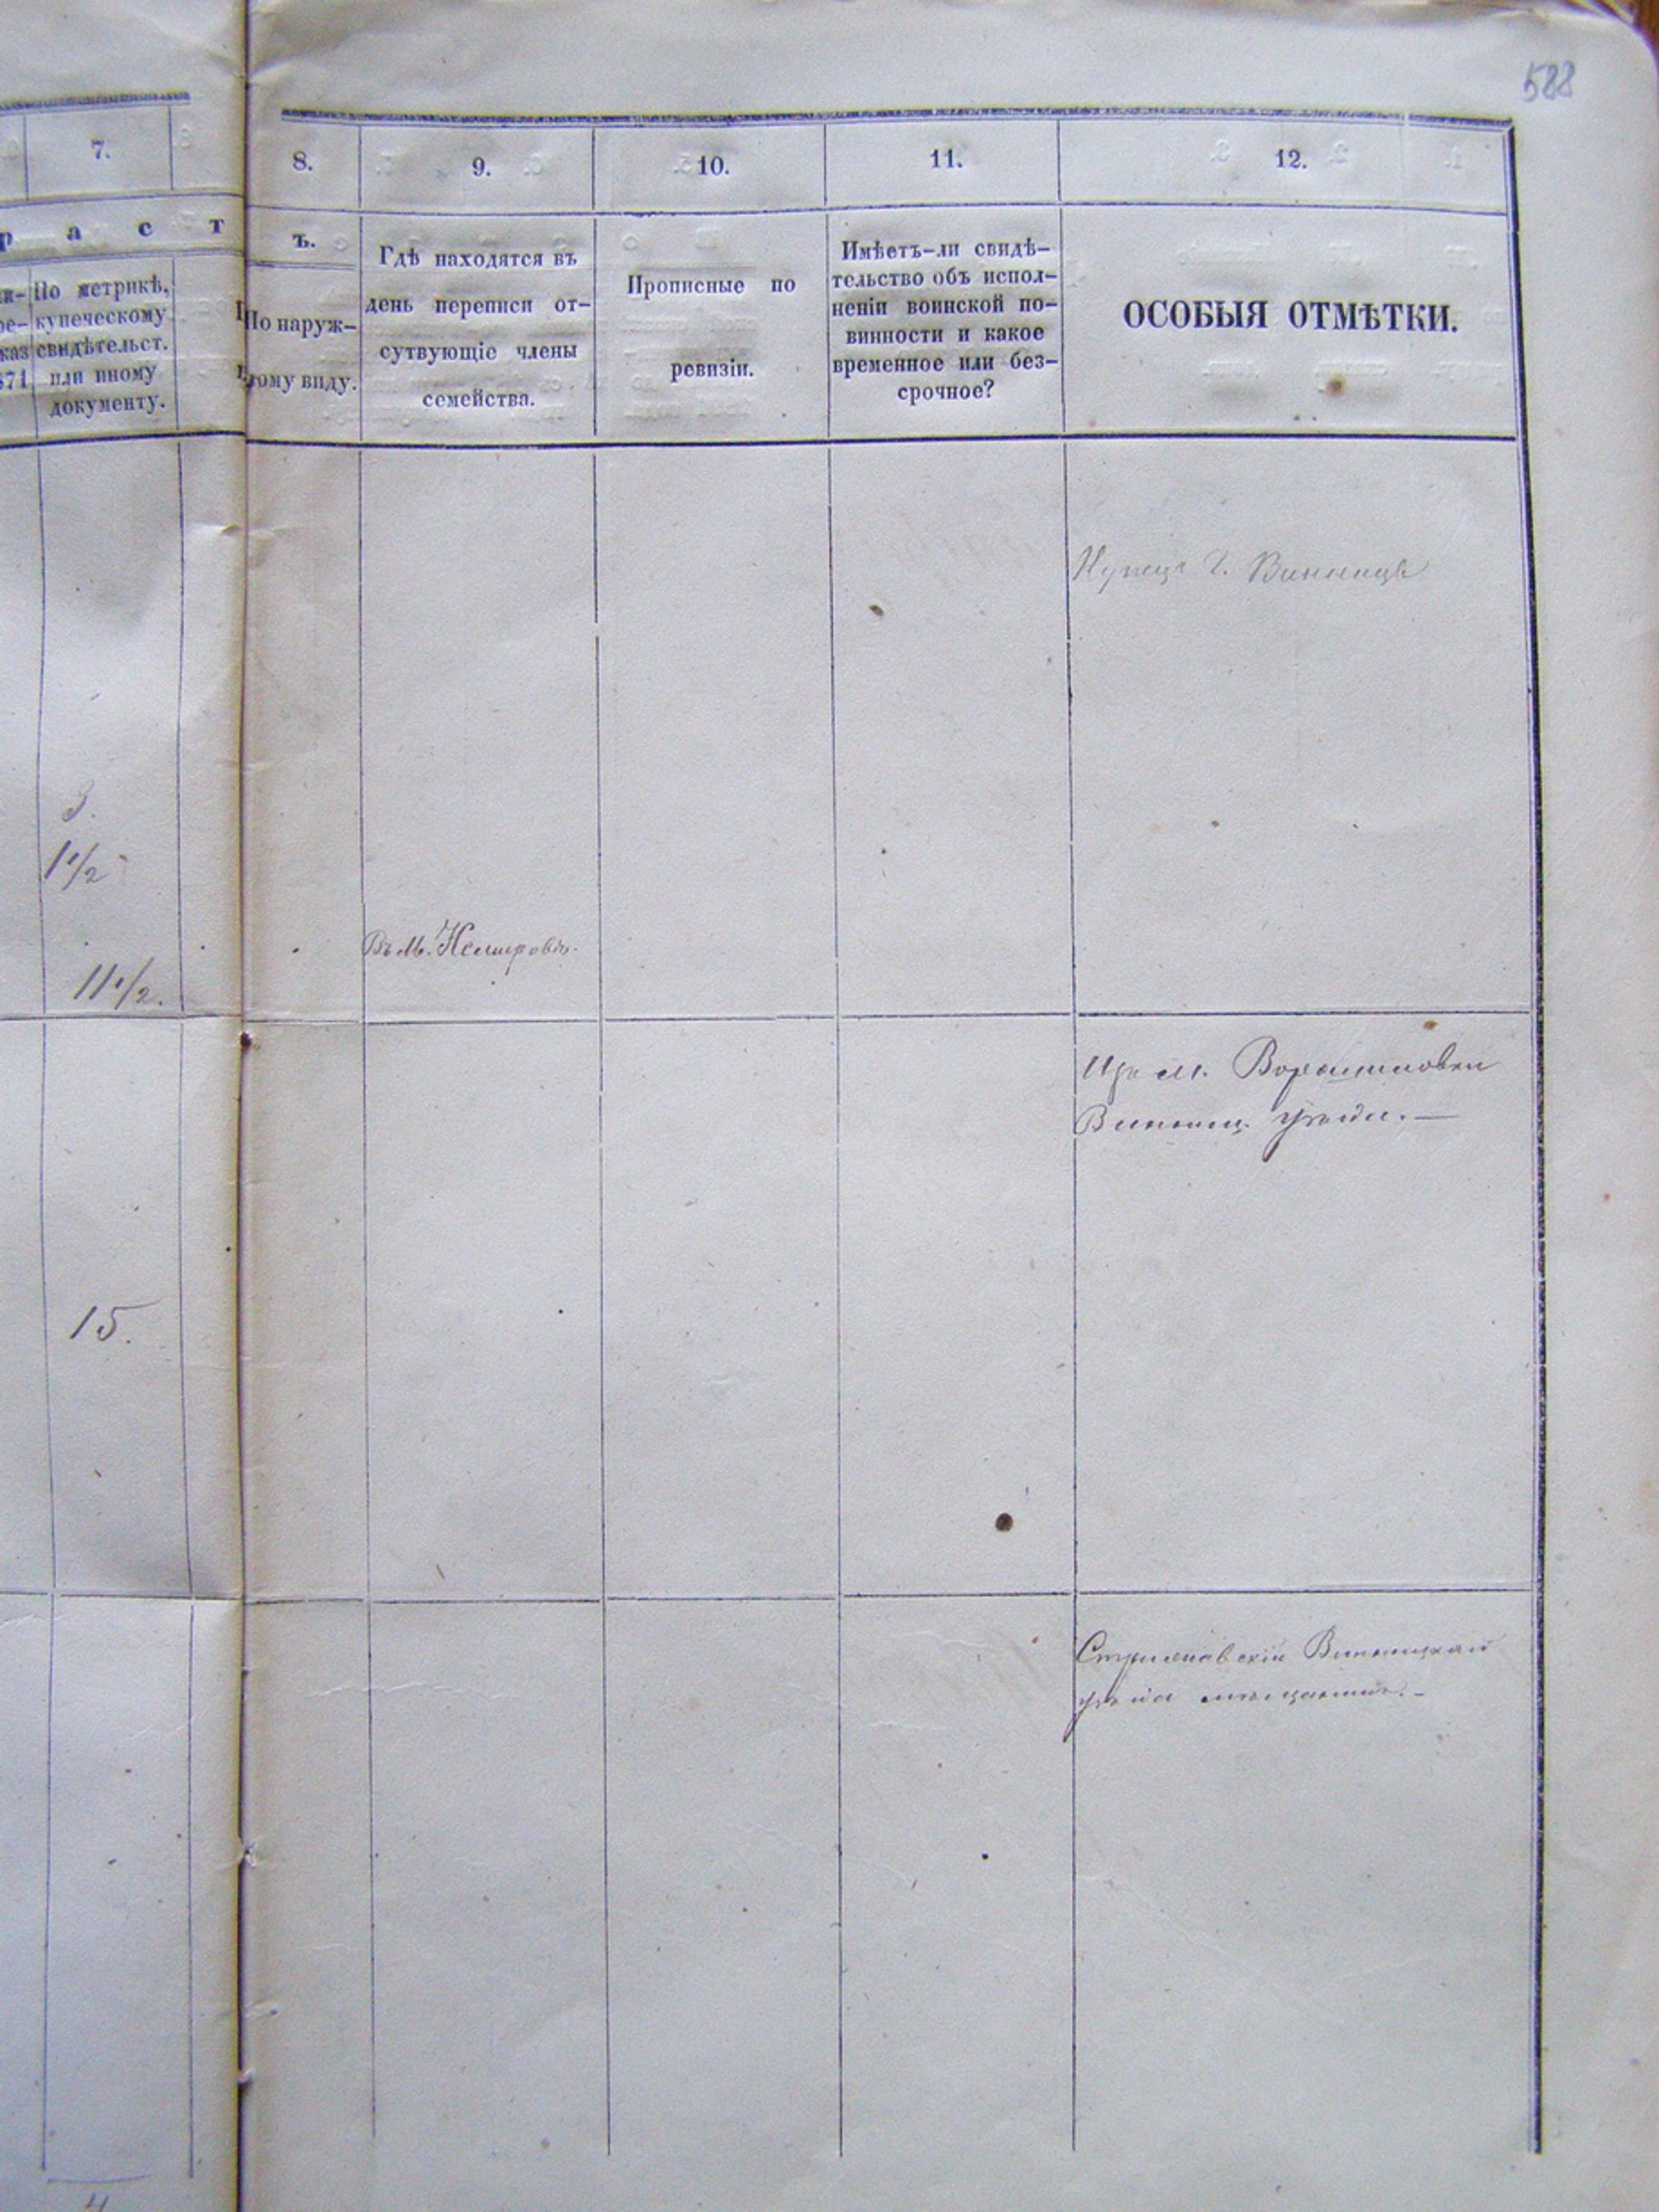 588
7.
8.
9.
10.
11.
12.
р а с т
ъ.
По метрикѣ,
купеческому
свидѣтельст.
или иному
документу.
По наруж-
ному виду.
Гдѣ находятся въ
день переписи от-
сутвующіе члены
семейства.
Прописные по
ревизіи.
Имѣетъ-ли свидѣ-
тельство объ испол-
неніи воинской по-
винности и какое
временное или без-
срочное?
ОСОБЫЯ ОТМѢТКИ.
Купецъ г. Винницы
3.
1 1/2
Въ м. Немировѣ.
11 1/2.
Изъ м. Ворошиловки
Винниц. уѣзда. —
15.
Стрижавскій Винницкаго
уѣзда мѣщанинъ. -
4